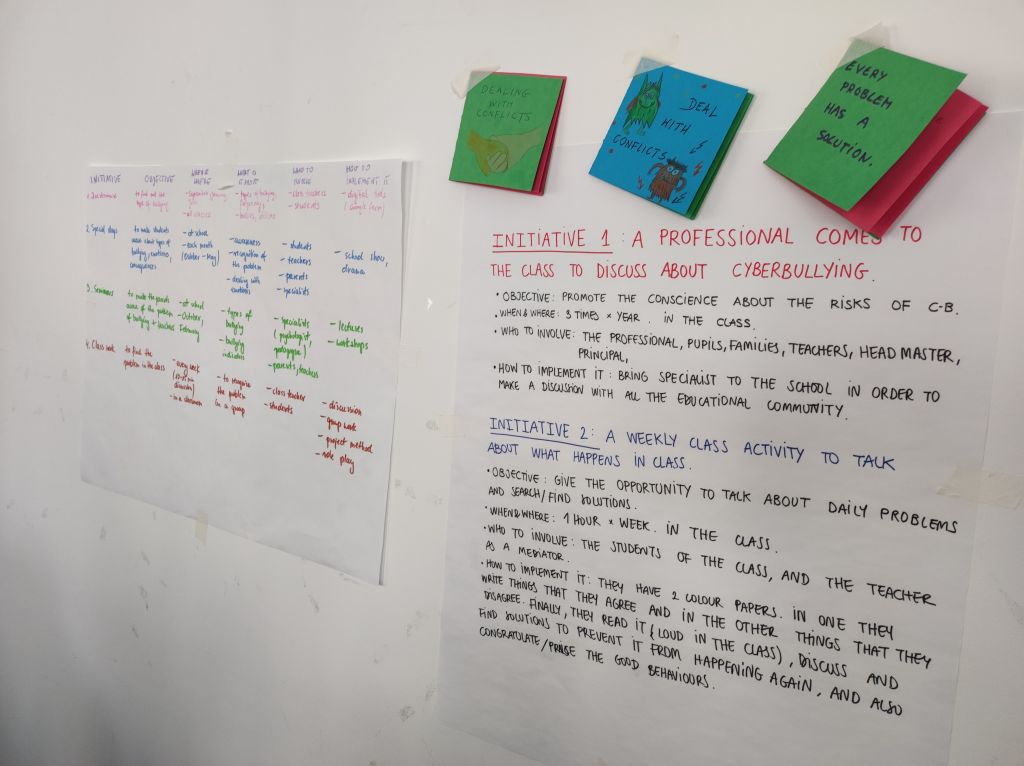 DEALING
WITH
CONFLICTS
DEAL
WITH
CONFLICTS
EVERY
PROBLEM
HAS A
SOLUTION.
INITIATIVE
OBJECTIVE
WHEN &
WHERE
WHAT IS
IT ABOUT
WHO TO
INVOLVE
HOW TO
IMPLEMENT IT
to find out the
type of bullying
- all classes
- types of bullying,
- class teachers
- students
- digital tools
(Google form)
2. Special days
to make students
aware about types of
bullying, emotions,
consequences
- at school
- each month
(October - May)
- awareness
- recognition of
the problem
- dealing with
emotions
- students
- teachers
- parents
- specialists
- school show,
drama
3. Seminars
to make the parents
aware of the problem
of bullying + teachers
- at school
- October,
February
- types of
bullying
- bullying
indicators
- specialists
(psychologist,
pedagogue)
- parents, teachers
- lectures
- workshops
4. Class work
to find the
problem in the class
- every week
- in a classroom
- to recognize
the problem
in a group
- class teacher
- students
- discussion
- group work
- project method
- role play
INITIATIVE 1: A PROFESSIONAL COMES TO
THE CLASS TO DISCUSS ABOUT CYBERBULLYING.
• OBJECTIVE: PROMOTE THE CONSCIENCE ABOUT THE RISKS OF C-B.
• WHEN & WHERE: 3 TIMES × YEAR. IN THE CLASS.
• WHO TO INVOLVE: THE PROFESSIONAL, PUPILS, FAMILIES, TEACHERS, HEAD MASTER,
PRINCIPAL,
• HOW TO IMPLEMENT IT: BRING SPECIALIST TO THE SCHOOL IN ORDER TO
MAKE A DISCUSION WITH ALL THE EDUCATIONAL COMMUNITY.
INITIATIVE 2: A WEEKLY CLASS ACTIVITY TO TALK
ABOUT WHAT HAPPENS IN CLASS.
• OBJECTIVE: GIVE THE OPPORTUNITY TO TALK ABOUT DAILY PROBLEMS
AND SEARCH/FIND SOLUTIONS.
• WHEN & WHERE: 1 HOUR × WEEK. IN THE CLASS.
• WHO TO INVOLVE: THE STUDENTS OF THE CLASS, AND THE TEACHER
AS A MEDIATOR.
• HOW TO IMPLEMENT IT: THEY HAVE 2 COLOUR PAPERS. IN ONE THEY
WRITE THINGS THAT THEY AGREE AND IN THE OTHER THINGS THAT THEY
DISAGREE. FINALLY, THEY READ IT (LOUD IN THE CLASS), DISCUSS AND
FIND SOLUTIONS TO PREVENT IT FROM HAPPENING AGAIN, AND ALSO
CONGRATULATE/PRAISE THE GOOD BEHAVIOURS.